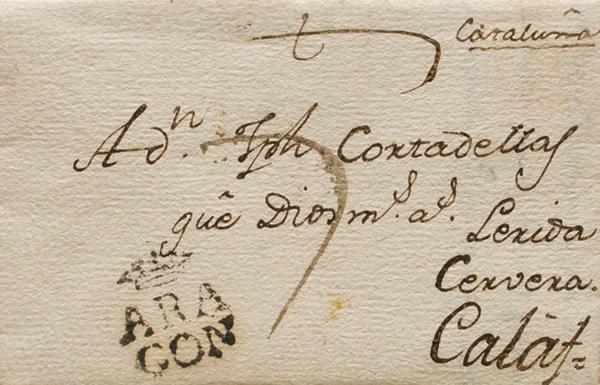 Cataluña
A dn. Jph Cortadellas
gûe Dios ms. as. Lerida
Cervera.
Calàf=
ARA
GON